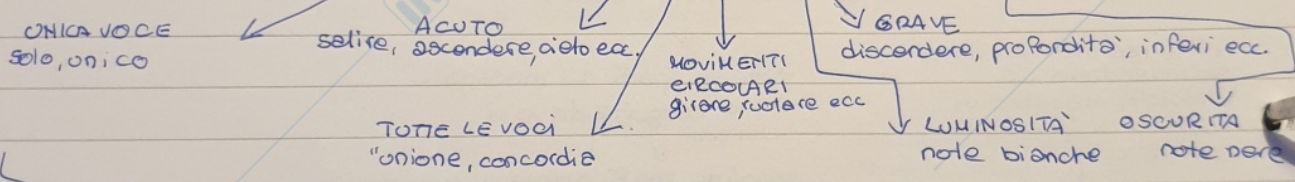 UNICA VOCE
solo, unico
ACUTO
salire, ascendere, cielo ecc.
MOVIMENTI
CIRCOLARI
girare, ruotare ecc
GRAVE
discendere, profondità, inferi ecc.
TUTTE LE VOCI
"unione, concordia
LUMINOSITÀ
note bianche
OSCURITA
note nere